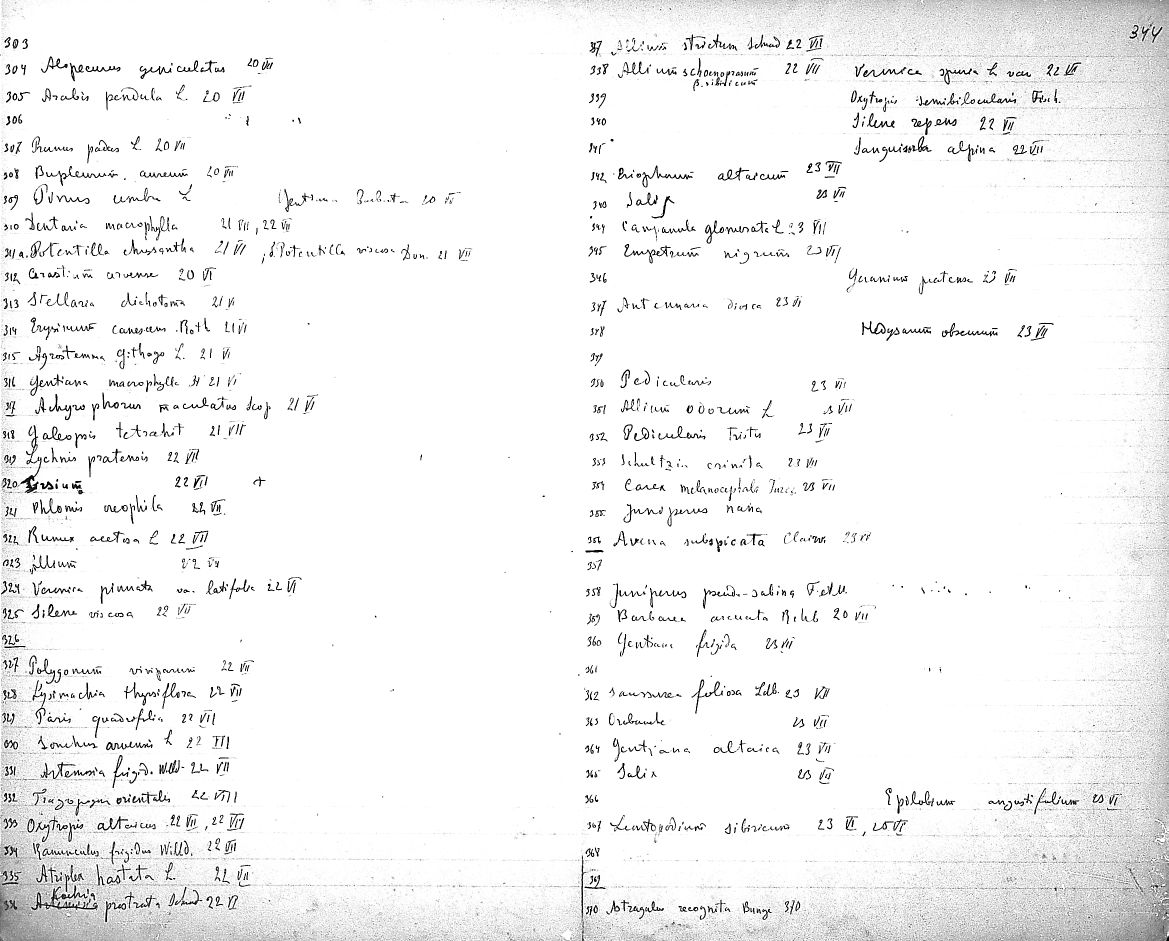 303
304 Alopecurus geniculatus 20 VII
305 Arabis pendula L. 20 VII
306
307 Prunus padus L. 20 VII
308 Bupleurum aureum 20 VII
309 Pinus cembra L Gentiana Barbata 20 VII
310 Dentaria macrophylla 21 VII, 22 VII
311 a. Potentilla chrysantha 21 VI, b. Potentilla viscosa Don. 21 VII
312 Cerastium arvense 20 VI
313 Stellaria dichotoma 21 VI
314 Erysimum canescens Roth 21 VI
315 Agrostemma githago L. 21 VI
316 Gentiana macrophylla 21 VI
317 Achyrophorus maculatus Scop 21 VI
318 Galeopsis tetrahit 21 VII
319 Lychnis pratensis 22 VII
320 Cirsium 22 VII +
321 Phlomis oreophila 22 VII
322 Rumex acetosa L 22 VII
323 Allium 22 VII
324 Veronica pinnata va. latifolia 22 VI
325 Silene viscosa 22 VII
326
327 Polygonum viviparum 22 VII
328 Lysimachia thyrsiflora 22 VII
329 Paris quadrifolia 22 VII
330 Sonchus arvensis L 22 VII
331 Artemisia frigid. Willd 22 VII
332 Tragopogon orientalis 22 VII
333 Oxytropis altaicus 22 VII, 22 VII
334 Ranunculus frigidus Willd. 22 VII
335 Atriplex hastata L. 22 VII
336 Kochia prostrata Schrad 22 VI
344
337 Allium strictum Schrad 22 VII
338 Allium schoenoprasum β. sibiricum 22 VII Veronica spuria L var 22 VII
339 Oxytropis semibilocularis Fisch.
340 Silene repens 22 VII
341 Sanguisorba alpina 22 VII
342 Eriophorum altaicum 23 VII
343 Salix 23 VII
344 Campanula glomerata L 23 VII
345 Empetrum nigrum 23 VII
346 Geranium pratense 23 VII
347 Antennaria dioica 23 VI
348 Hedysarum obscurum 23 VII
349
350 Pedicularis 23 VII
351 Allium odorum L VII
352 Pedicularis tristis 23 VII
353 Schultzia crinita 23 VII
354 Carex melanocephala Turcz. 23 VII
355 Juniperus nana
356 Avena subspicata Clairv 23 VII
357
358 Juniperus pseudo-sabina F. et M.
359 Barbarea arcuata Rchb 20 VII
360 Gentiana frigida 23 VII
361
362 Saussurea foliosa Ldb. 23 VII
363 Orobanche 23 VII
364 Gentiana altaica 23 VII
365 Salix 23 VII
366 Epilobium angustifolium 23 VI
367 Leontopodium sibiricum 23 VI, 25 VI
368
369
370 Astragalus recognita Bunge 370